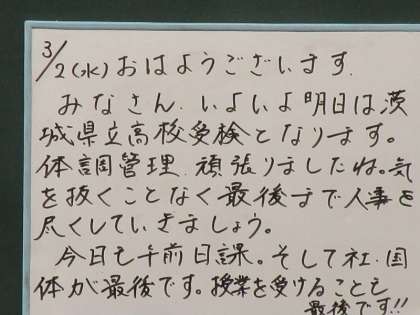 3/2(水)おはようございます.
みなさん.いよいよ明日は茨
城県立高校受検となります。
体調管理.頑張りましたね。気
を抜くことなく最後まで人事を
尽くしていきましょう。
今日も午前日課。そして社.国
体が最後です。授業を受けることも
最後です!!